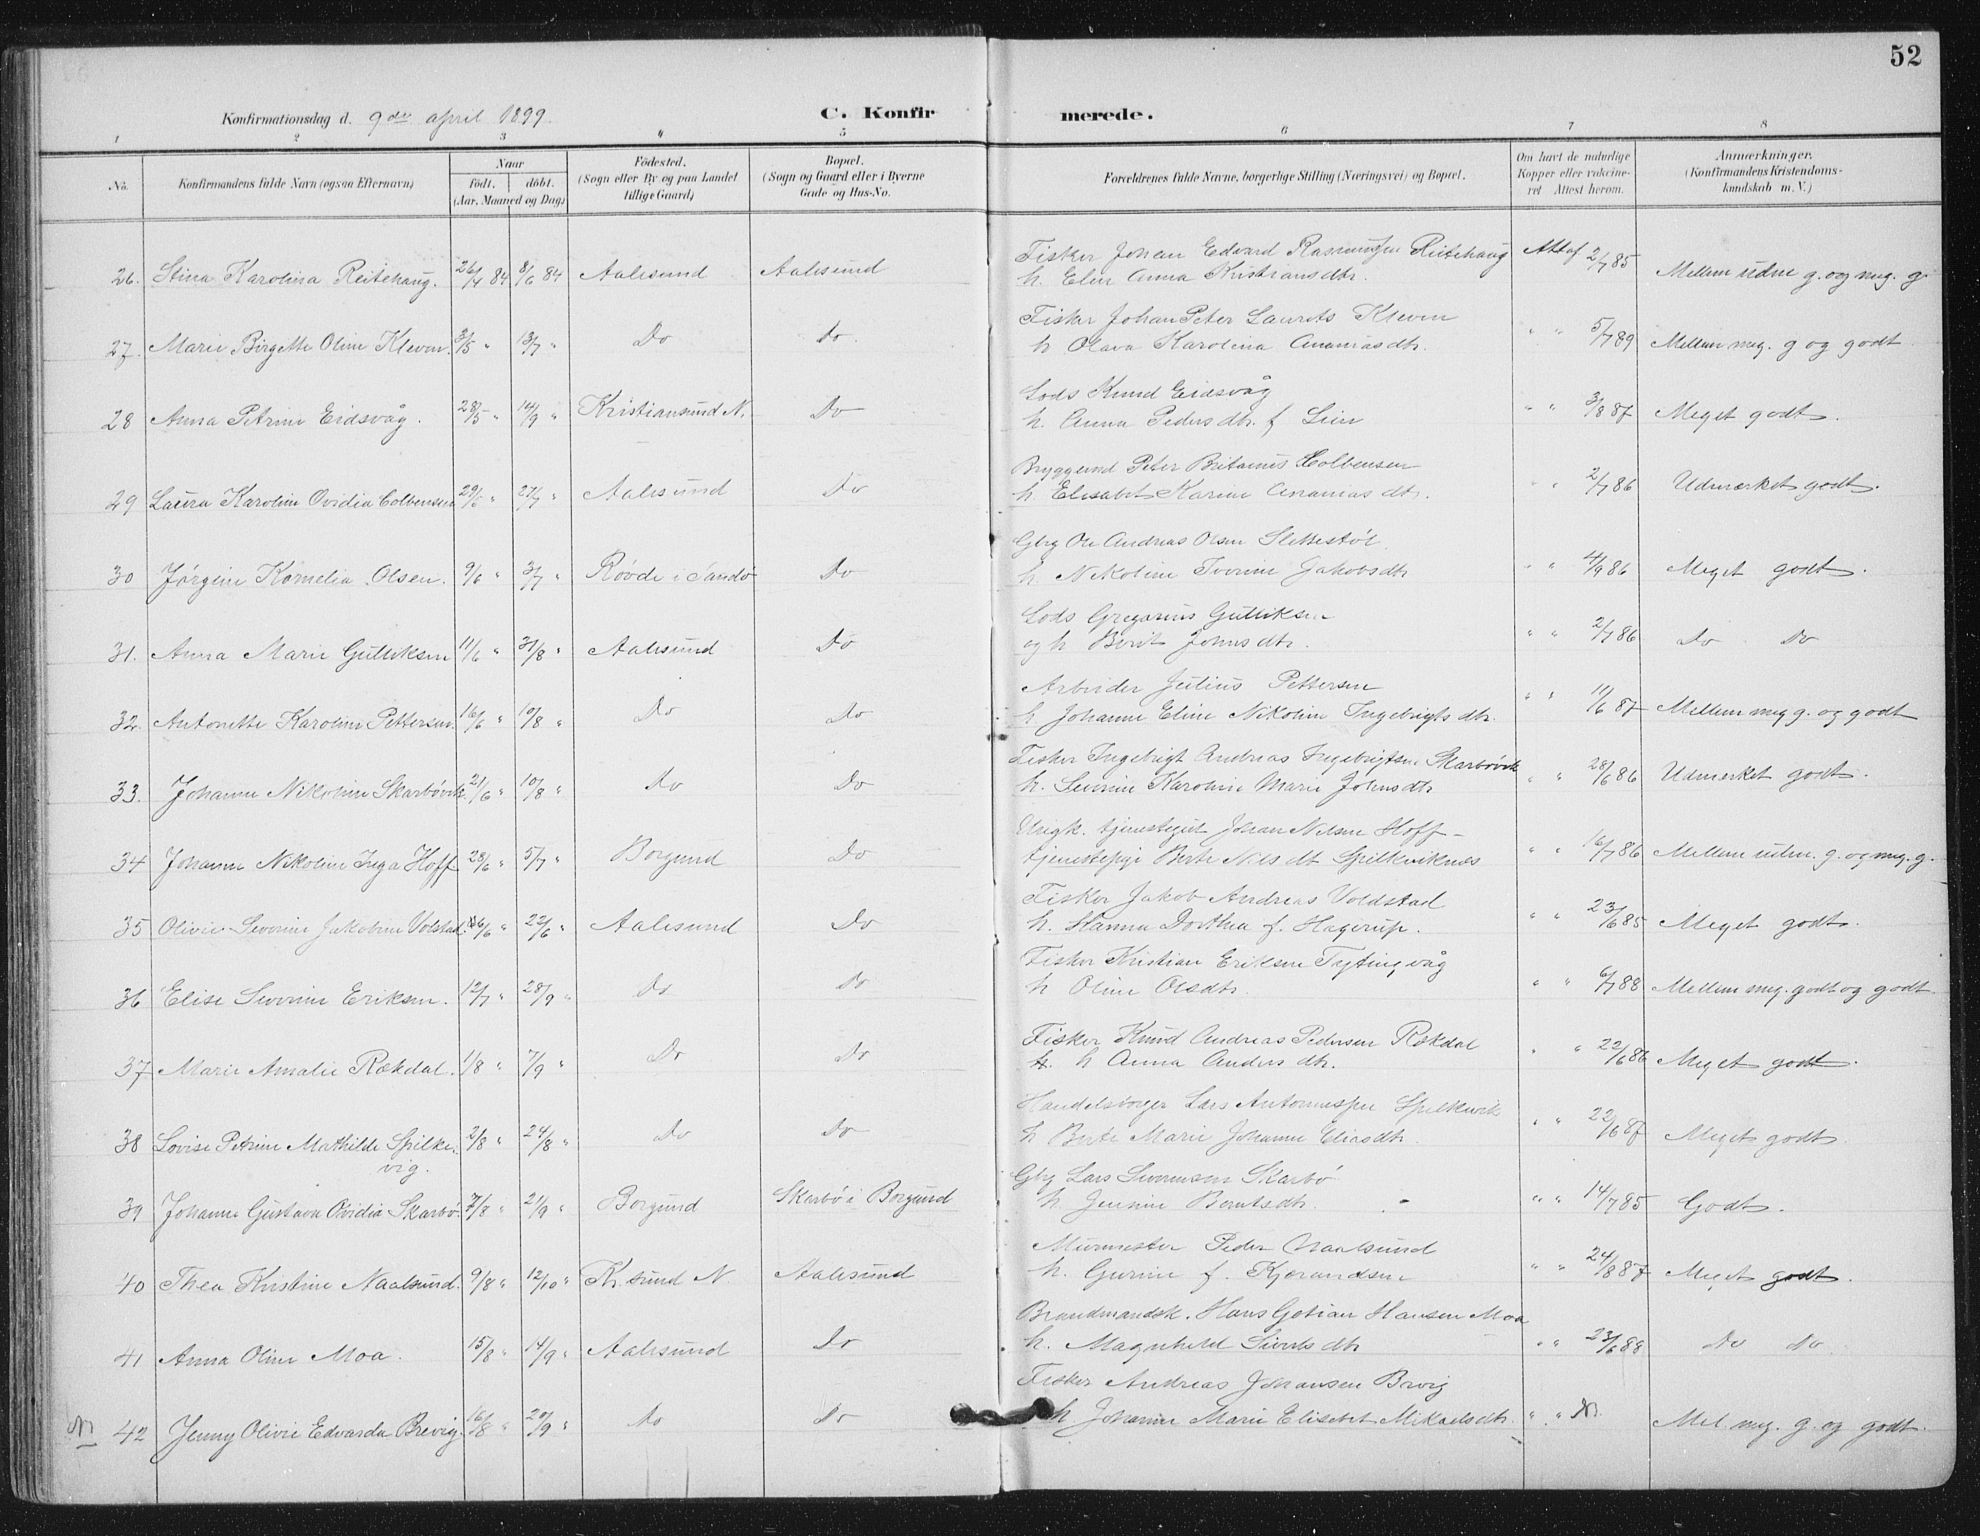 52
Konfirmationsdag d. 9de april 1899.
C. Konfirmerede.
1 2 3 4 5 6 7 8
No. Konfirmandens fulde Navn (ogsaa Efternavn)
Naar födt. döbt. (Aar, Maaned og Dag)
Födested. (Sogn eller By og paa Landet tillige Gaard)
Bopæl. (Sogn og Gaard eller i Byerne Gade og Hus-No.
Forældrenes fulde Navne, borgerlige Stilling (Næringsvei) og Bopæl.
Om havt de naturlige Kopper eller vakcineret Attest herom.
Anmærkninger. (Konfirmandens Kristendomskundskab m. V.)
26. Stina Karolina Reitehaug. 26/4 84 8/6 84 Aalesund Aalesund Fisker Johan Edvard Rasmussen Reitehaug Att af 2/7 85 Mellem udm g. og meg. g
h. Elen Anna Kristiansdtr.
27. Marie Birgitte Oline Kleven. 3/5 " 13/7 " Do Do. Fisker Johan Peter Laurits Kleven " " 5/7 89 Mellem meg. g og godt
h Olava Karolina Ananiasdtr.
28 Anna Petrine Eidsvåg. 28/5 " 14/9 " Kristiansund N. Do Lods Knud Eidsvåg " " 3/8 87 Meget godt.
h. Anna Pedersdtr. f Lien
29 Laura Karoline Ovidia Colbensen 29/5 " 27/7 " Aalesund Do Bryggemd Peter Britanus Colbensen " " 2/7 86 Udmærket godt.
h. Elisabet Karine Ananiasdtr.
30 Jørgine Kornelia Olsen. 9/6 " 3/7 " Røvde i Sandø Do Gbg Ole Andreas Olsen Slettestøl. " " 4/9 86 Meget godt.
h. Nikoline Iverine Jakobsdtr
31. Anna Marie Gulliksen 11/6 " 31/8 " Aalesund Do Lods Gregorius Gulliksen " " 2/7 86 Do Do
og h Berit Johnsdtr.
32. Antonette Karoline Pettersen. 16/6 " 10/8 " Do Do Arbeider Julius Pettersen " " 11/6 87 Mellem meg g. og godt
h. Johanne Eline Nikoline Ingebrigtsdtr.
33. Johanne Nikoline Skarbøvik. 21/6 " 10/8 " Do Do Fisker Ingebrigt Andreas Ingebrigtsen Skarbøvik " " 28/6 86 Udmerket godt.
h. Severine Karoline Marie Johnsdtr
34 Johanne Nikoline Inga Hoff 23/6 " 5/7 " Borgund Do Ungk. tjenestegut Johan Nilsen Hoff – " " 16/7 86 Mellem udm. g. og meg. g.
tjenestepige Berte Nilsdt Spilkeviknes
35 Olivie Severine Jakobine Volstad. 26/6 " 22/6 " Aalesund Do Fisker Jakob Andreas Voldstad " " 23/6 85 Meget godt.
h. Hanna Dorthea f. Hagerup.
36 Elise Severine Eriksen. 12/7 " 28/9 " Do Do Fisker Kristian Eriksen Tytingvåg " " 6/7 88 Mellem meg. godt og godt
h Oline Olsdtr.
37 Marie Amalie Rækdal. 1/8 " 7/9 " Do Do Fisker Knud Andreas Pedersen Rækdal " " 22/6 86 Meget godt.
h. h Anna Andersdtr.
38 Lovise Petrine Mathilde Spilkevig. 2/8 " 24/8 " Do Do Handelsborger Lars Antoniussen Spilkevik " " 22/6 87 Meget godt.
h Berte Marie Johanne Eliasdtr.
39 Johanne Gustava Ovidia Skarbø. 7/8 " 21/9 " Borgund Skarbø i Borgund Gbg Lars Severinsen Skarbø " " 14/7 85 Godt.
h. Jensine Berntsdtr.
40 Thea Kristine Naalsund. 9/8 " 12/10 " Kr. sund N. Aalesund Murmester Peder Naalsund " " 24/8 87 Meget godt.
h. Gurine f. Kjørandsen
41 Anna Oline Moa. 15/8 " 14/9 " Aalesund Do Brandmandsk. Hans Gotian Hansen Moa " " 23/6 88 Do Do
h. Magnhild Sivertsdtr
N 42 Jenny Olivie Edvarda Brevig. 16/8 " 20/9 " Do Do Fisker Andreas Johansen Brevig " " N. Mel. meg. g. og godt.
h. Johanne Marie Elisebet Mikaelsdtr.